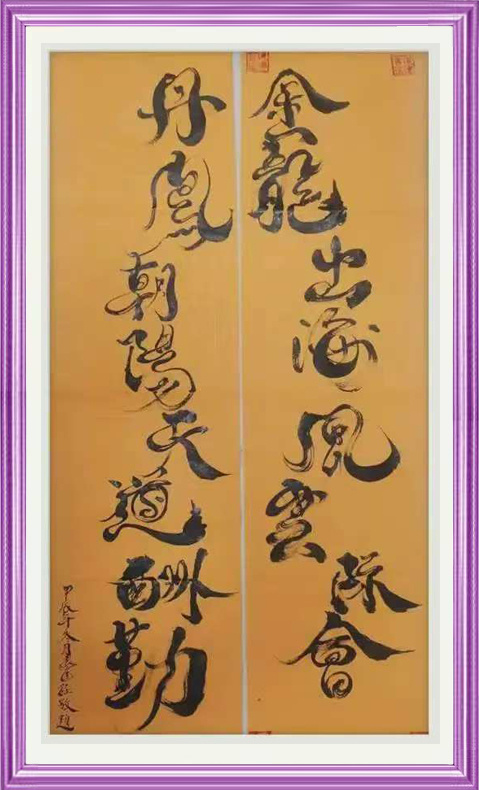 金龍出海風雲際會
丹鳳朝陽天道酬勤
甲辰年